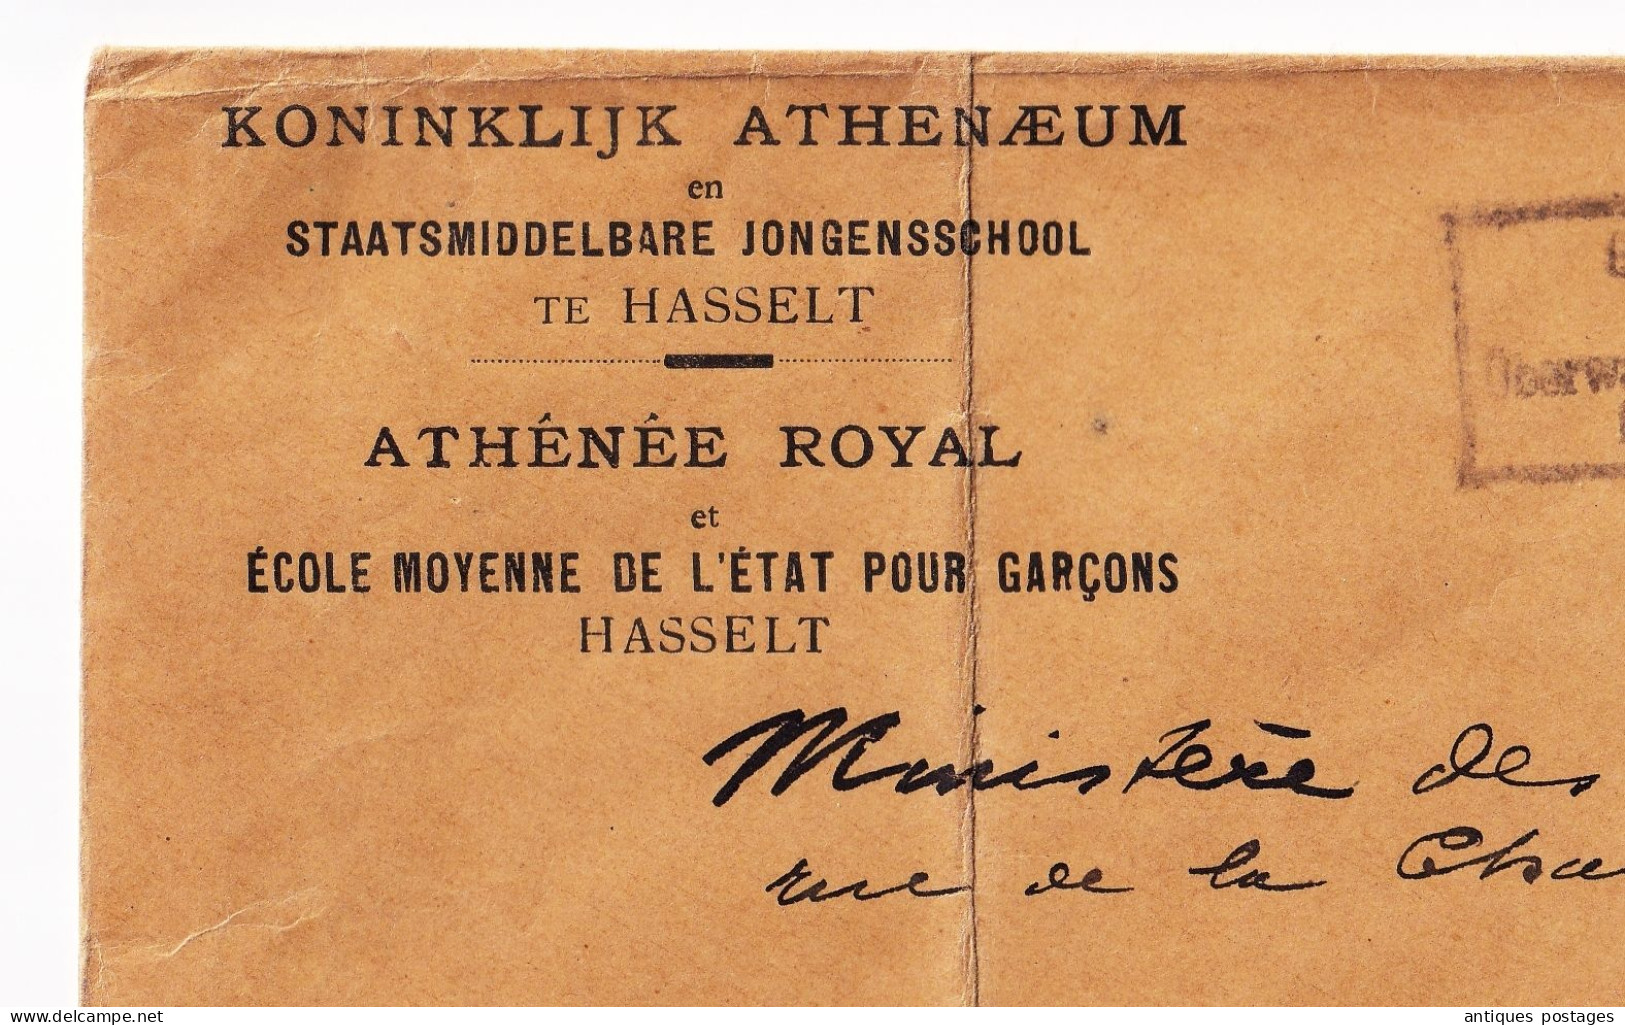 KONINKLIJK ATHENÆUM
en
STAATSMIDDELBARE JONGENSSCHOOL
TE HASSELT
ATHÉNÉE ROYAL
et
ÉCOLE MOYENNE DE L'ÉTAT POUR GARÇONS
HASSELT
Ministère des
rue de la
delcampe.net
antiques postages